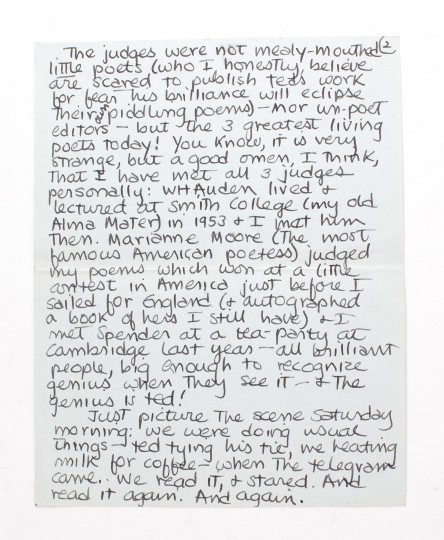 The judges were not mealy-mouthed (2
little poets (who I, honestly, believe
are scared to publish ted's work
for fear his brilliance will eclipse
their own piddling poems) - nor un-poet
editors - but the 3 greatest living
poets today! You know, it is very
strange, but a good omen, I think,
that I have met all 3 judges
personally: WH Auden lived &
lectured at Smith College (my old
Alma Mater) in 1953 & I met him
then. Marianne Moore (The most
famous American poetess) judged
my poems which won at a little
contest in America just before I
sailed for England (& autographed
a book of hers I still have) & I
met Spender at a tea-party at
Cambridge last year - all brilliant
people, big enough to recognize
genius when They see it - & The
genius is ted!
Just picture The scene Saturday
morning: we were doing usual
things - ted tying his tie, me heating
milk for coffee - when The telegram
came. We read it, & stared. And
read it again. And again.